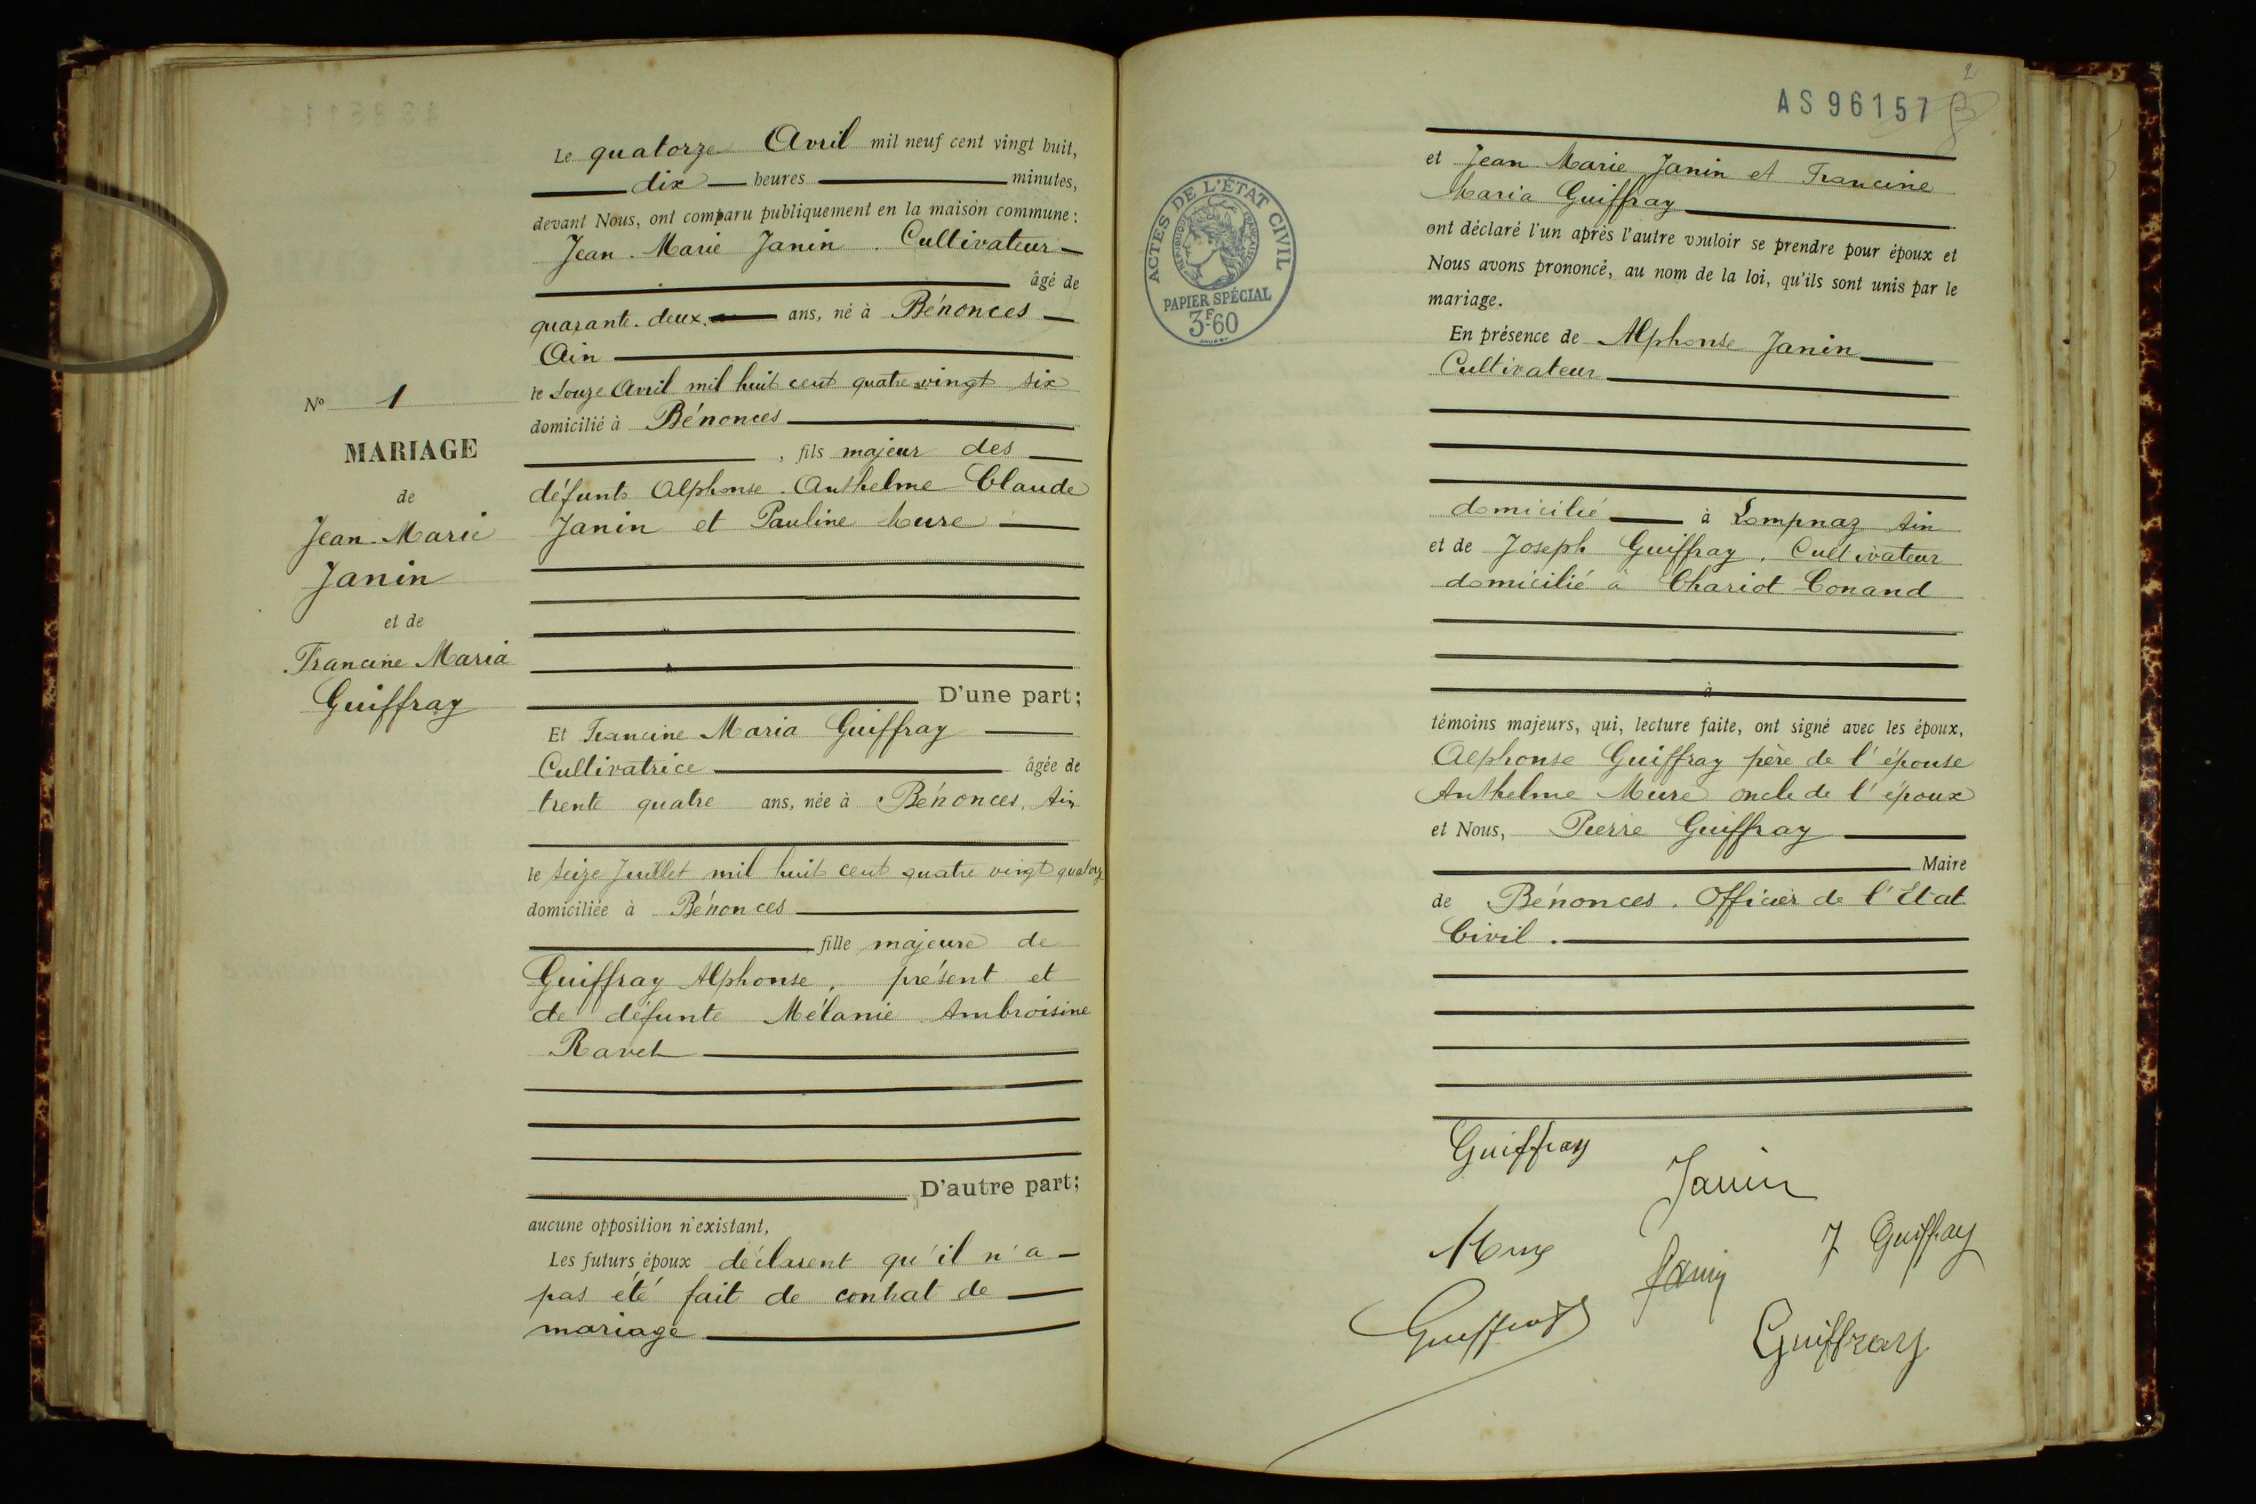 Nº 1
MARIAGE
de
Jean-Marie
Janin
et de
Francine Maria
Guiffray
Le quatorze Avril mil neuf cent vingt huit,
dix heures minutes,
devant Nous, ont comparu publiquement en la maison commune :
Jean-Marie Janin. Cultivateur
âgé de
quarante-deux ans, né à Bénonces
Ain
le douze Avril mil huit cent quatre vingt six
domicilié à Bénonces
, fils majeur des
défunts Alphonse-Anthelme Claude
Janin et Pauline Mure
D'une part;
Et Francine Maria Guiffray
Cultivatrice âgée de
trente quatre ans, née à Bénonces, Ain
le seize Juillet mil huit cent quatre vingt quatorz
domiciliée à Bénonces
fille majeure de
Guiffray Alphonse, présent et
de défunte Mélanie Ambroisine
Ravet
D'autre part;
aucune opposition n'existant,
Les futurs époux déclarent qu'il n'a
pas été fait de contrat de
mariage
2
AS 96157
ACTES DE L'ÉTAT CIVIL
RÉPUBLIQUE FRANÇAISE
PAPIER SPÉCIAL
3F60
et Jean Marie Janin et Francine
Maria Guiffray
ont déclaré l'un après l'autre vouloir se prendre pour époux et
Nous avons prononcé, au nom de la loi, qu'ils sont unis par le
mariage.
En présence de Alphonse Janin
Cultivateur
domicilié à Lompnaz Ain
et de Joseph Guiffray. Cultivateur
domicilié à Chariot Conand
à
témoins majeurs, qui, lecture faite, ont signé avec les époux,
Alphonse Guiffray père de l'épouse
Anthelme Mure oncle de l'époux
et Nous, Pierre Guiffray
Maire
de Bénonces. Officier de l'Etat
Civil.
Guiffray
Janin
Mure
Janin
J Guiffray
Guiffray
Guiffray